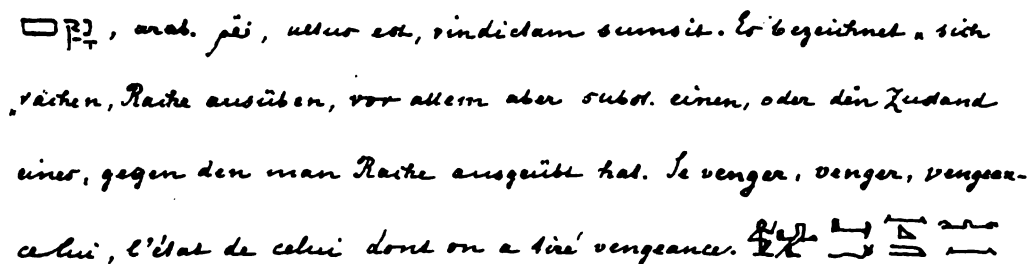 , arab. نقم, ultus est, vindictam sumsit. Es bezeichnet „sich
„rächen, Rache ausüben, vor allem aber subst. einen, oder den Zustand
eines, gegen den man Rache ausgeübt hat. Se venger, venger, vengean-
ce lui, l'état de celui dont on a tiré vengeance.